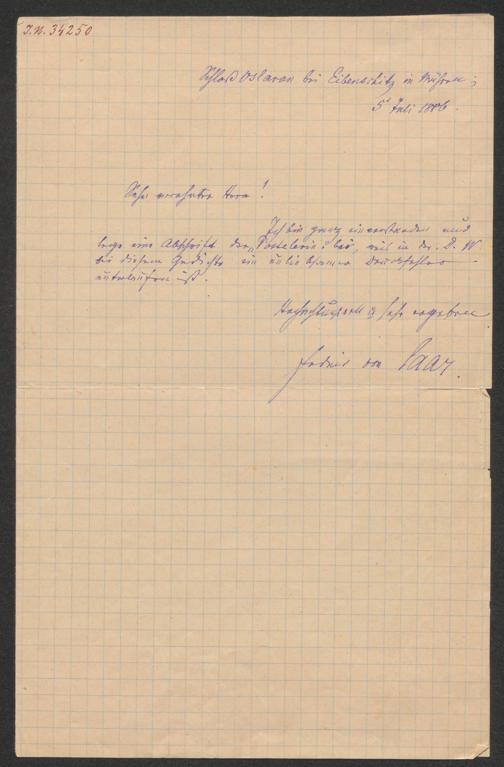 I.N. 34250
Schloß Oslavan bei Eibenschitz in Mähren;
5t Juli 1886.
Sehr verehrter Herr!
Ich bin ganz einverstanden und
lege eine Abschrift der „Postelevin“ bei, weil in der D. W
bei diesem Gedichte ein unliebsamer Druckfehler
unterlaufen ist.
Hochachtungsvoll sehr ergeben
Ferdinand von Saar.